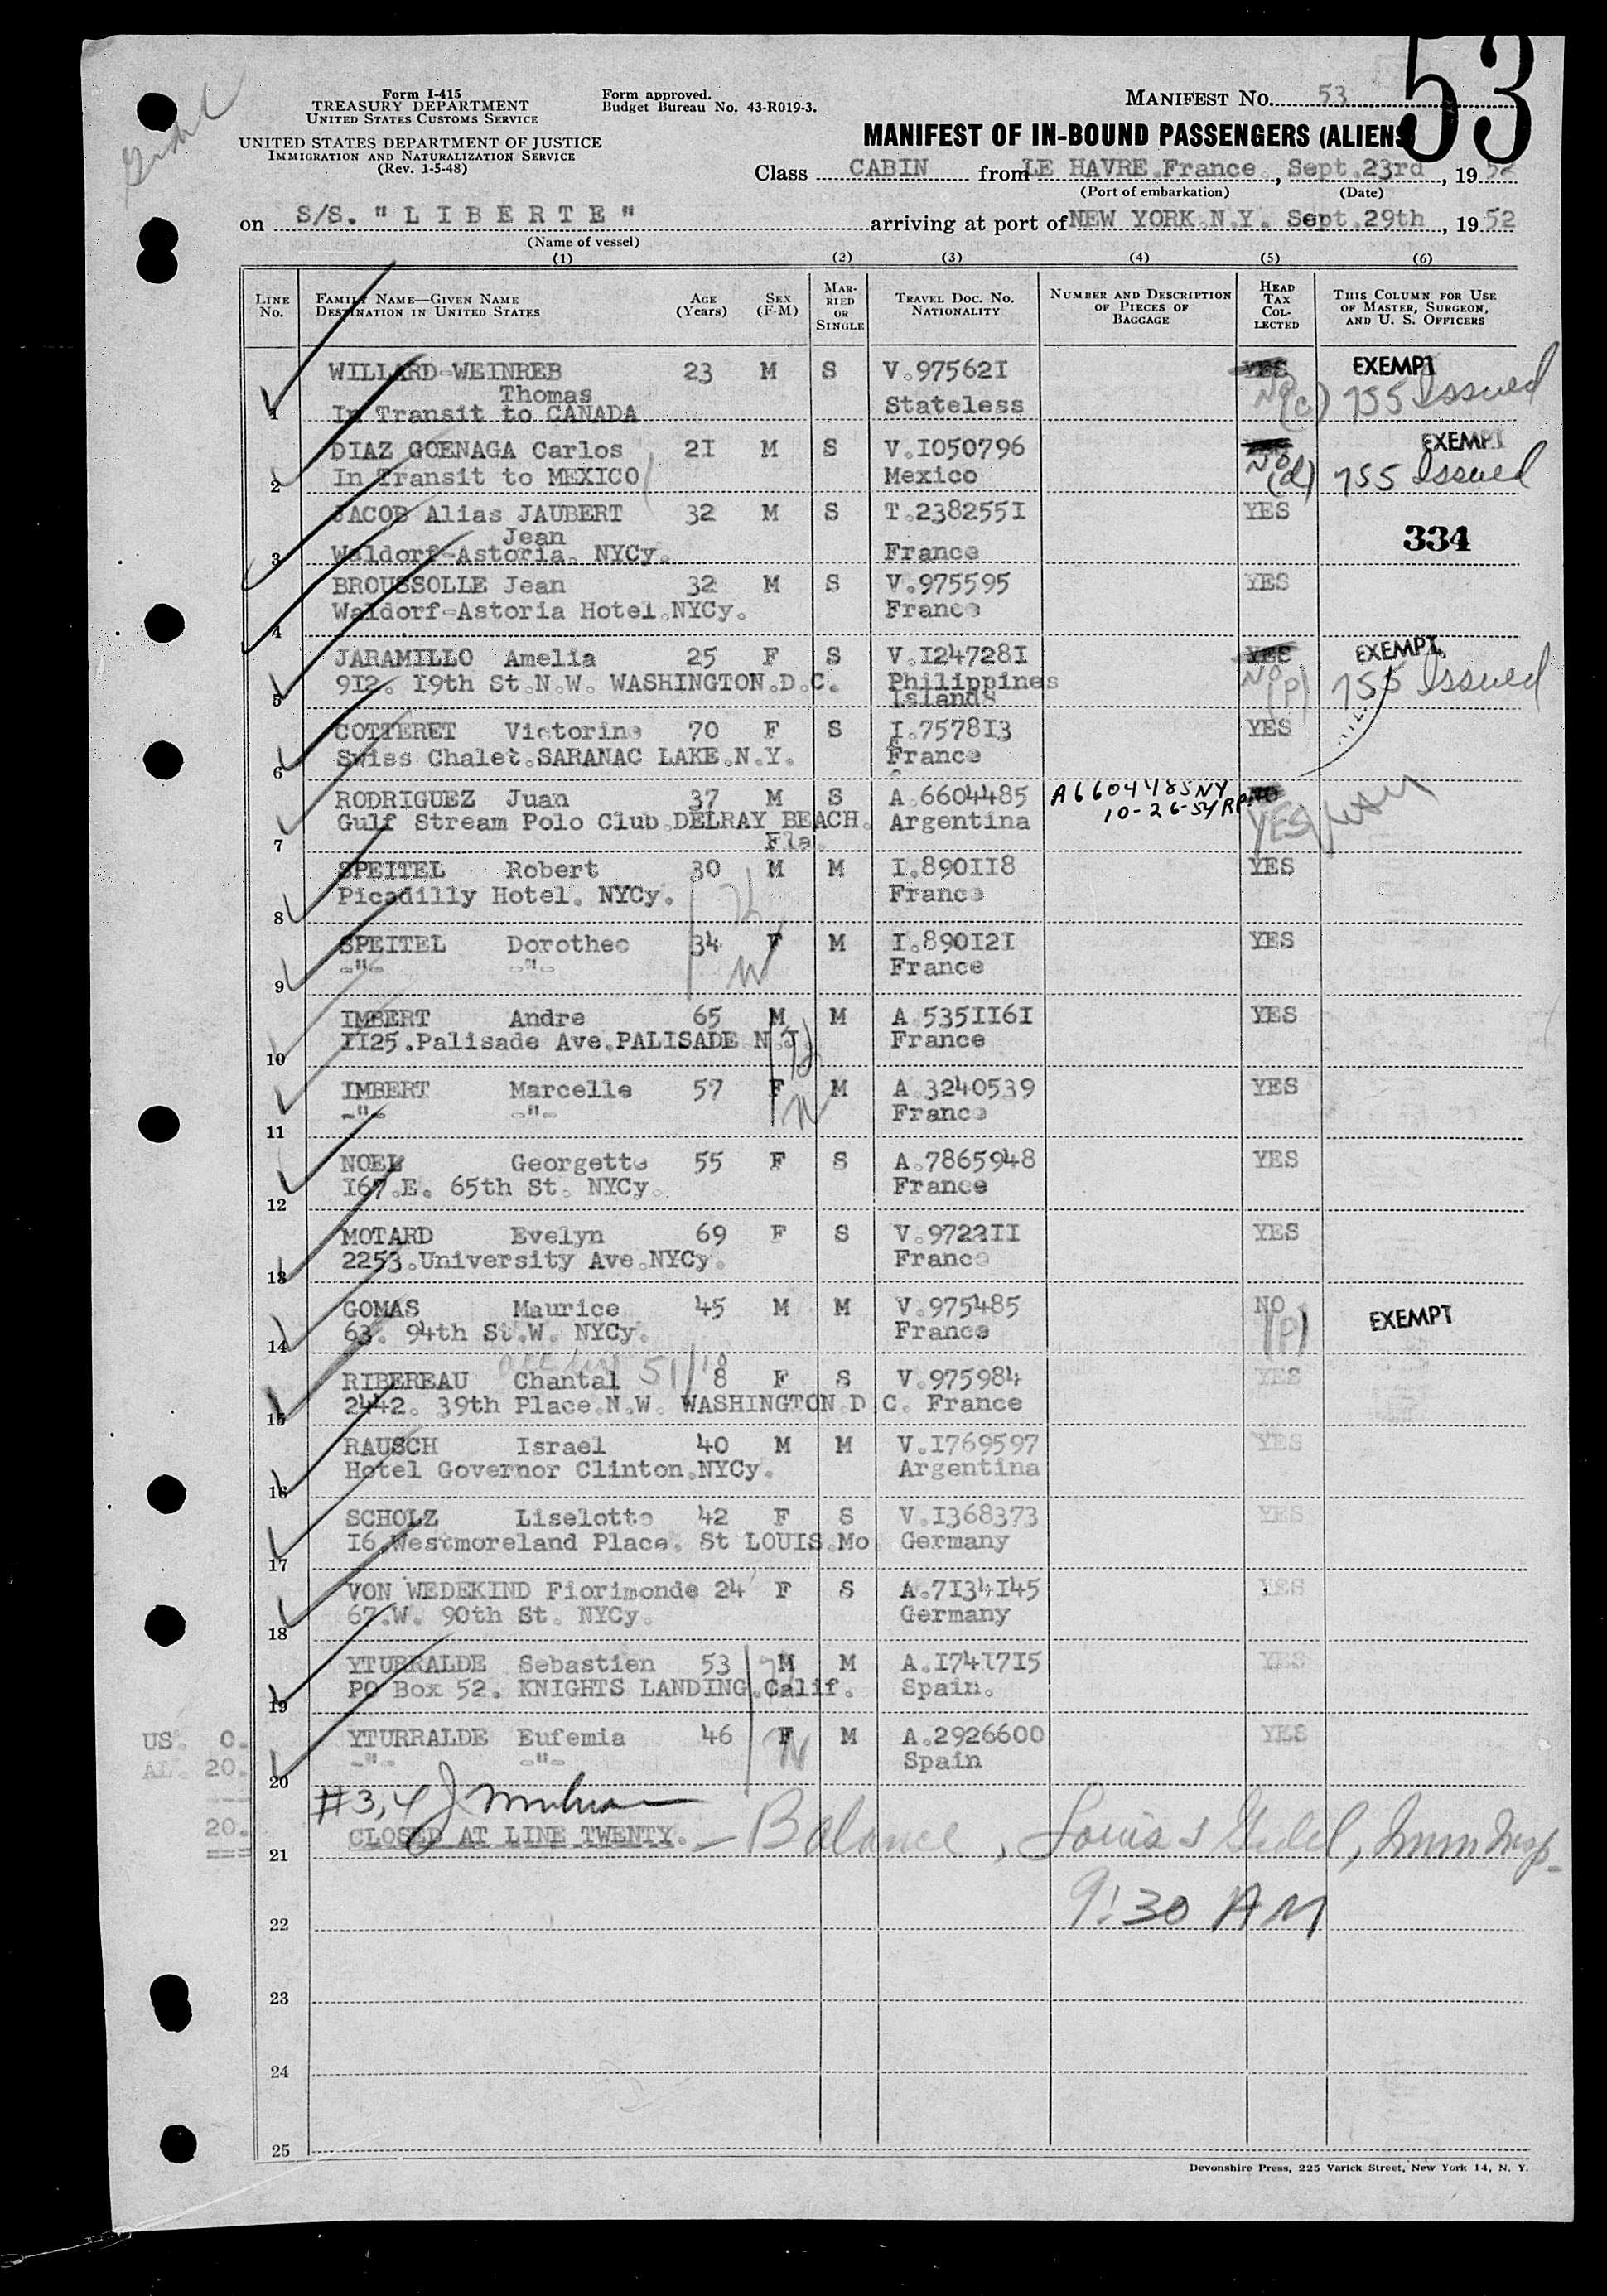 53
Form I-415
TREASURY DEPARTMENT
UNITED STATES CUSTOMS SERVICE
UNITED STATES DEPARTMENT OF JUSTICE
IMMIGRATION AND NATURALIZATION SERVICE
(Rev. 1-5-48)
Form approved.
Budget Bureau No. 43-R019-3.
MANIFEST NO. 53
MANIFEST OF IN-BOUND PASSENGERS (ALIENS
Class CABIN from LE HAVRE.France., Sept.23rd, 1952
(Port of embarkation) (Date)
on S/S. "LIBERTE" arriving at port of NEW YORK.N.Y. Sept.29th, 1952
(Name of vessel)
(1) (2) (3) (4) (5) (6)
LINE No. FAMILY NAME—GIVEN NAME DESTINATION IN UNITED STATES AGE (Years) SEX (F-M) MARRIED OR SINGLE TRAVEL DOC. NO. NATIONALITY NUMBER AND DESCRIPTION OF PIECES OF BAGGAGE HEAD TAX COLLECTED THIS COLUMN FOR USE OF MASTER, SURGEON, AND U. S. OFFICERS
WILLARD-WEINREB 23 M S V.975621 YES EXEMPT
Thomas
1 In Transit to CANADA Stateless NO (c) 755 Issued
DIAZ GOENAGA Carlos 21 M S V.1050796 EXEMPT
2 In Transit to MEXICO Mexico No (d) 755 Issued
JACOB Alias JAUBERT 32 M S T.2382551 YES
Jean 334
3 Waldorf-Astoria. NYCy. France
BROUSSOLLE Jean 32 M S V.975595 YES
4 Waldorf-Astoria Hotel.NYCy. France
JARAMILLO Amelia 25 F S V.1247281 YES EXEMPT
5 912. 19th St.N.W. WASHINGTON.D.C. Philippines Islands NO (P) 755 Issued
COTTERET Victorine 70 F S I.757813 YES
6 Swiss Chalet.SARANAC LAKE.N.Y. France
RODRIGUEZ Juan 37 M S A.6604485 A6604485NY NO
7 Gulf Stream Polo Club.DELRAY BEACH. Fla. Argentina 10-26-54 RP. YES
SPEITEL Robert 30 M M I.890118 YES
8 Picadilly Hotel. NYCy. France
SPEITEL Dorothee 34 F M I.890121 YES
9 -"- -"- France
IMBERT Andre 65 M M A.5351161 YES
10 1125.Palisade Ave.PALISADE N.J. France
IMBERT Marcelle 57 F M A.3240539 YES
11 -"- -"- France
NOEL Georgette 55 F S A.7865948 YES
12 167.E. 65th St. NYCy. France
MOTARD Evelyn 69 F S V.972211 YES
13 2253.University Ave.NYCy. France
GOMAS Maurice 45 M M V.975485 NO EXEMPT
14 63. 94th St.W. NYCy. France (P)
RIBEREAU Chantal 51/18 8 F S V.975984 YES
15 2442. 39th Place.N.W. WASHINGTON.D.C. France
RAUSCH Israel 40 M M V.1769597 YES
16 Hotel Governor Clinton.NYCy. Argentina
SCHOLZ Liselotte 42 F S V.1368373 YES
17 16.Westmoreland Place. St LOUIS.Mo Germany
VON WEDEKIND Fiorimonde 24 F S A.7134145 YES
18 67.W. 90th St. NYCy. Germany
YTURRALDE Sebastien 53 M M A.1741715 YES
19 PO Box 52. KNIGHTS LANDING.Calif. Spain.
US. 0. YTURRALDE Eufemia 46 F M A.2926600 YES
AL. 20. 20 -"- -"- Spain
#3,4
20. 21 CLOSED AT LINE TWENTY. — Balance, Louis J Gedel, Imm Insp.
9:30 AM
22
23
24
25
Devonshire Press, 225 Varick Street, New York 14, N. Y.